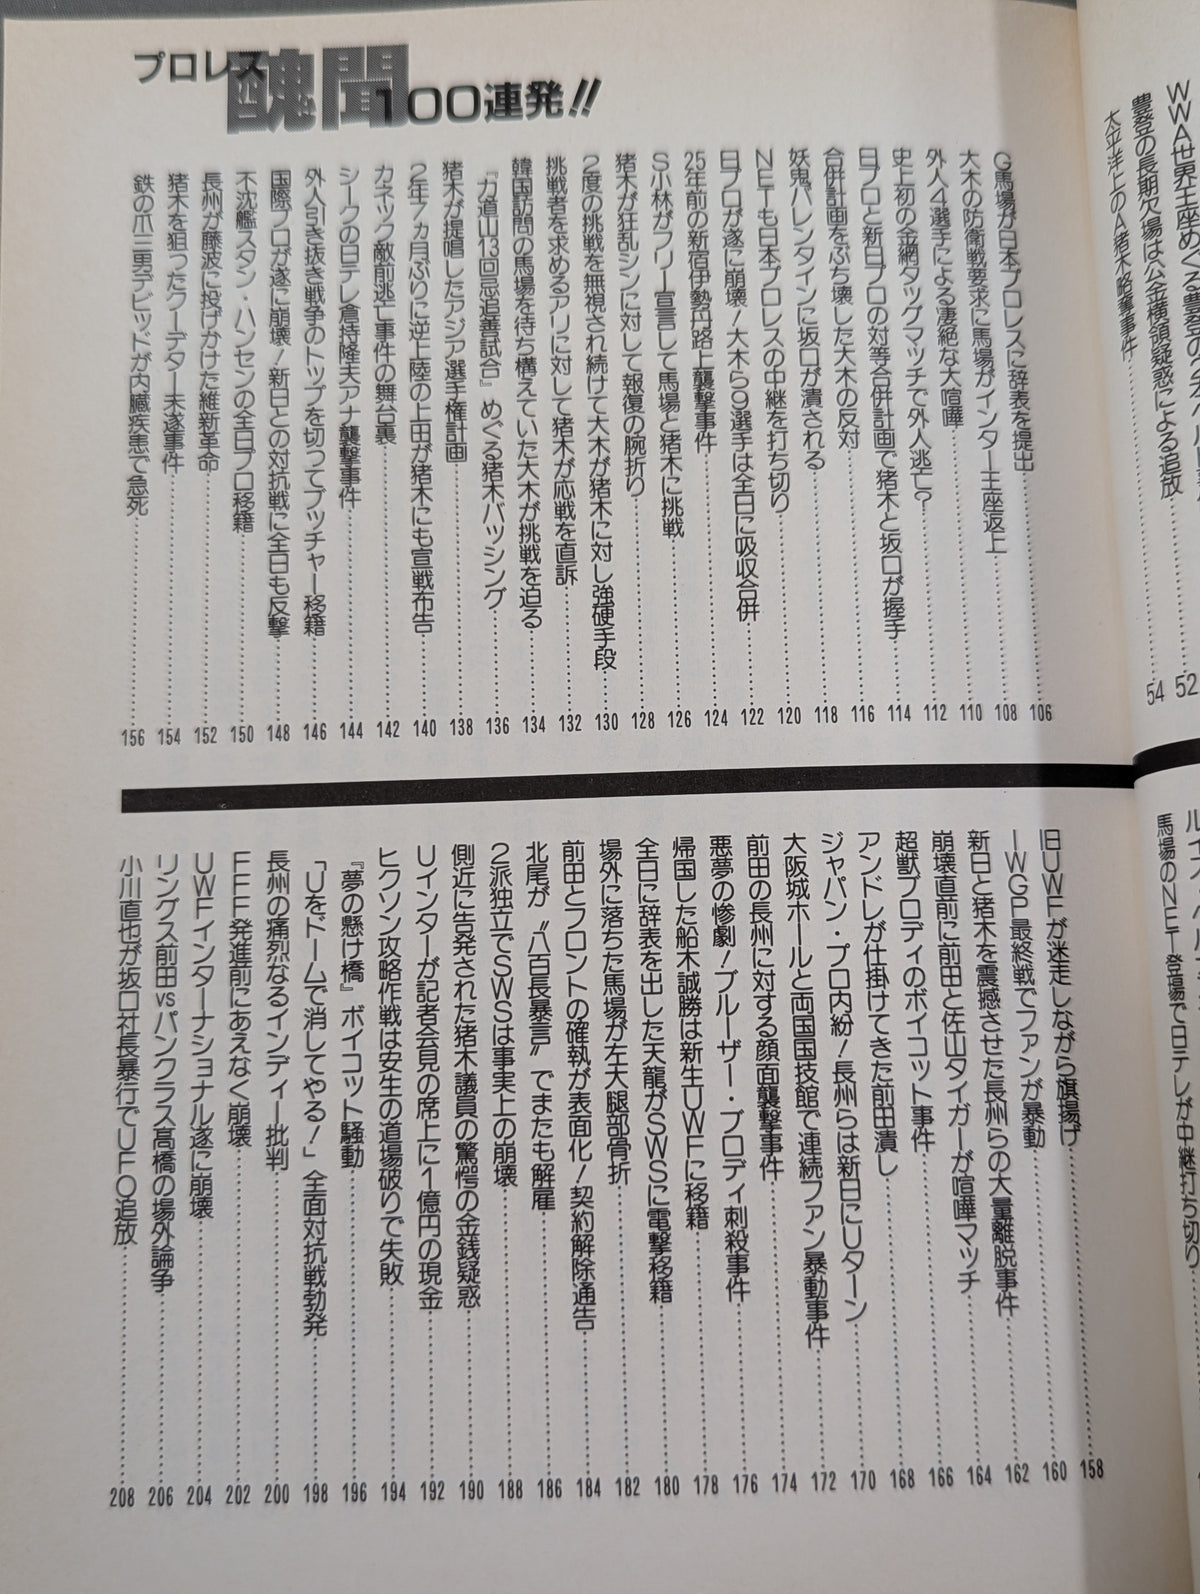 プロレス醜聞100連発!!
WWA世界王座めぐる豊登の
豊登の長期欠場は公金横領疑惑による追放……52
太平洋上のA猪木略奪事件……54
G馬場が日本プロレスに辞表を提出……106
大木の防衛戦要求に馬場がインター王座返上……108
外人4選手による凄絶な大喧嘩……110
史上初の金網タッグマッチで外人逃亡?……112
日プロと新日プロの対等合併計画で猪木と坂口が握手……114
合併計画をぶち壊した大木の反対……116
妖鬼バレンタインに坂口が潰される……118
NETも日本プロレスの中継を打ち切り……120
日プロが遂に崩壊!大木ら9選手は全日に吸収合併……122
25年前の新宿伊勢丹路上襲撃事件……124
S小林がフリー宣言して馬場と猪木に挑戦……126
猪木が狂乱シンに対して報復の腕折り……128
2度の挑戦を無視され続けて大木が猪木に対し強硬手段……130
挑戦者を求めるアリに対して猪木が応戦を直訴……132
韓国訪問の馬場を待ち構えていた大木が挑戦を迫る……134
『力道山13回忌追善試合』めぐる猪木バッシング……136
猪木が提唱したアジア選手権計画……138
2年7ヵ月ぶりに逆上陸の上田が猪木にも宣戦布告……140
カネック敵前逃亡事件の舞台裏……142
シークの日テレ倉持隆夫アナ襲撃事件……144
外人引き抜き戦争のトップを切ってブッチャー移籍……146
国際プロが遂に崩壊!新日との対抗戦に全日も反撃……148
不沈艦スタン・ハンセンの全日プロ移籍……150
長州が藤波に投げかけた維新革命……152
猪木を狙ったクーデター未遂事件……154
鉄の爪三男デビッドが内臓疾患で急死……156
馬場のNET登場で日テレが中継打ち切り
旧UWFが迷走しながら旗揚げ……158
IWGP最終戦でファンが暴動……160
新日と猪木を震撼させた長州らの大量離脱事件……162
崩壊直前に前田と佐山タイガーが喧嘩マッチ……164
超獣ブロディのボイコット事件……166
アンドレが仕掛けてきた前田潰し……168
ジャパン・プロ内紛!長州らは新日にUターン……170
大阪城ホールと両国国技館で連続ファン暴動事件……172
前田の長州に対する顔面襲撃事件……174
悪夢の惨劇!ブルーザー・ブロディ刺殺事件……176
帰国した船木誠勝は新生UWFに移籍……178
全日に辞表を出した天龍がSWSに電撃移籍……180
場外に落ちた馬場が左大腿部骨折……182
前田とフロントの確執が表面化!契約解除通告……184
北尾が〝八百長暴言〟でまたも解雇……186
2派独立でSWSは事実上の崩壊……188
側近に告発された猪木議員の驚愕の金銭疑惑……190
Uインターが記者会見の席上に1億円の現金……192
ヒクソン攻略作戦は安生の道場破りで失敗……194
『夢の懸け橋』ボイコット騒動……196
「Uをドームで消してやる!」全面対抗戦勃発……198
長州の痛烈なるインディー批判……200
FFF発進前にあえなく崩壊……202
UWFインターナショナル遂に崩壊……204
リングス前田vsパンクラス高橋の場外論争……206
小川直也が坂口社長暴行でUFO追放……208